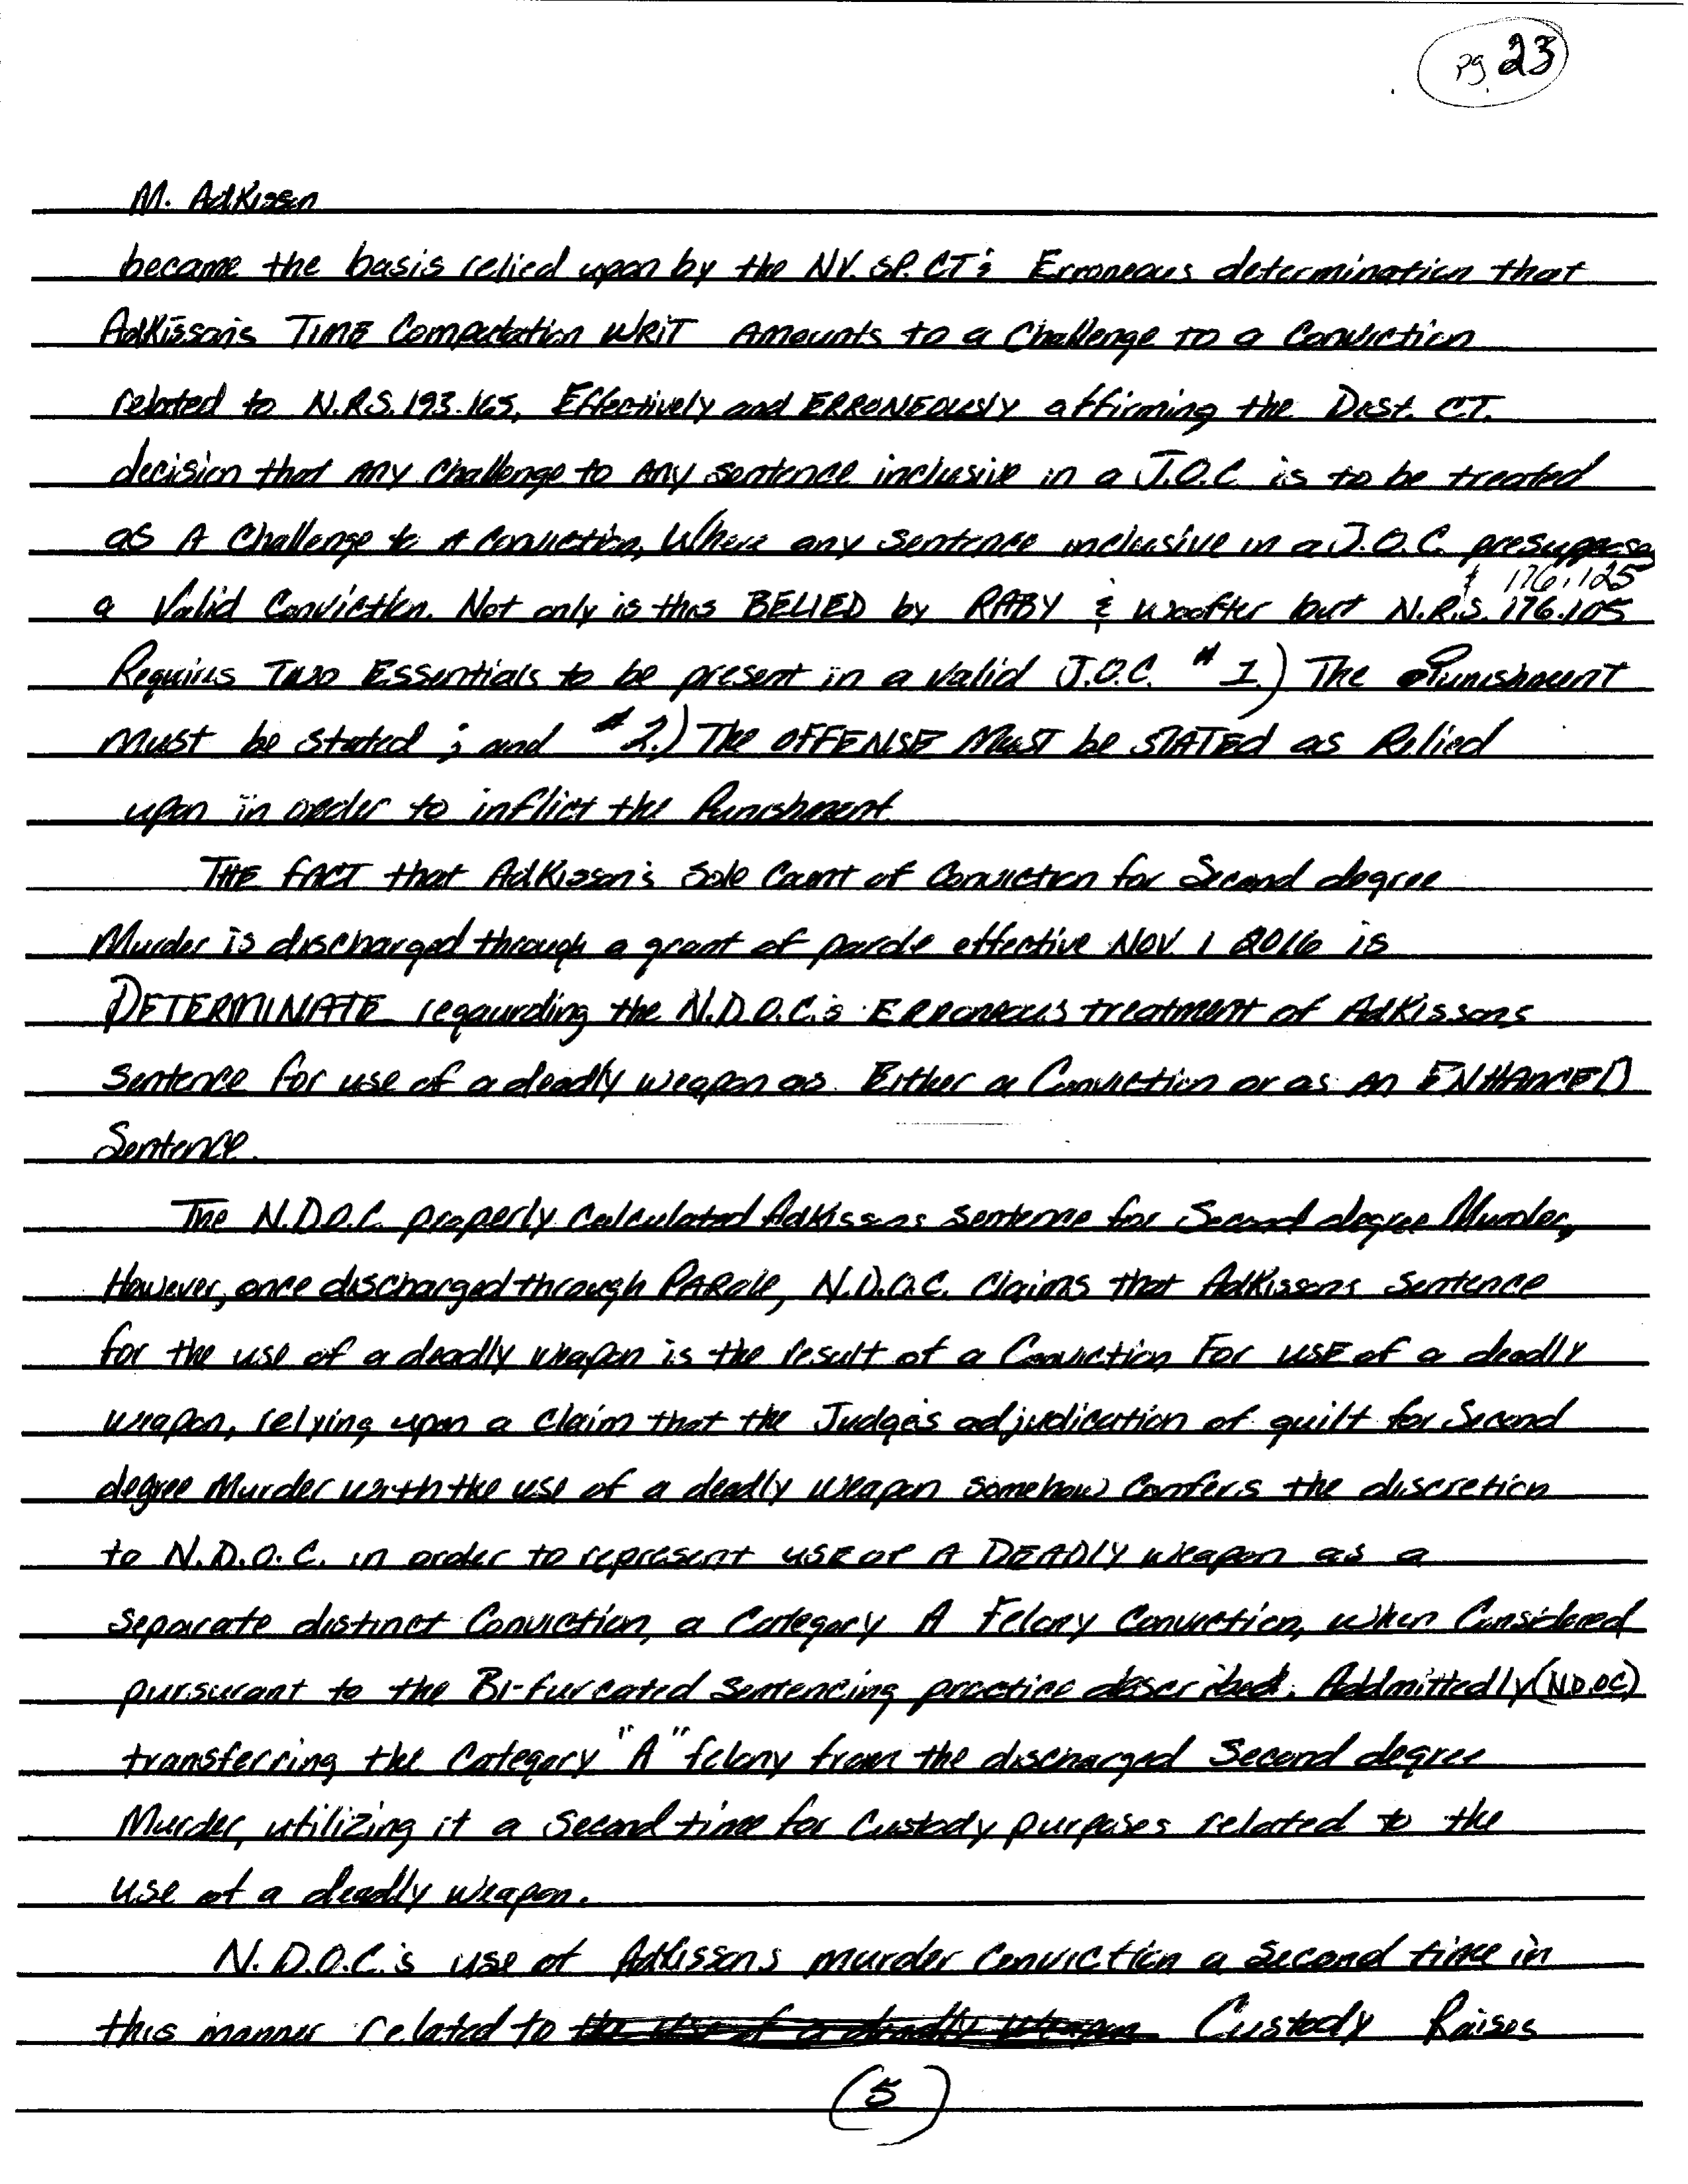 pg. 23
M. Adkisson
became the basis relied upon by the NV. SP. CT's Erroneous determination that
Adkisson's TIME Computation WRIT Amounts to a Challenge to a Conviction
related to N.R.S. 193.165, Effectively and ERRONEOUSLY affirming the Dist. CT.
decision that ANY Challenge to ANY sentence inclusive in a J.O.C is to be treated
as A Challenge to A Conviction, Where any Sentence inclusive in a J.O.C.
& 176.125
a Valid Conviction. Not only is this BELIED by RABY & Woofter but N.R.S. 176.105
Requires TWO Essentials to be present in a valid J.O.C. # 1.) The Punishment
Must be stated ; and # 2.) The OFFENSE MUST be STATED as Relied
upon in order to inflict the Punishment.
THE FACT that Adkisson's Sole Count of Conviction for Second degree
Murder is discharged through a grant of parole effective NOV. 1 2016 is
DETERMINATE regaurding the N.D.O.C.'s Erroneous treatment of Adkissons
Sentence for use of a deadly weapon as Either a Conviction or as AN ENHANCED
Sentence.
The N.D.O.C. properly Calculated Adkissons sentence for Second degree Murder,
However, once discharged through PARole, N.D.O.C. Claims that Adkissons Sentence
for the use of a deadly weapon is the result of a Conviction For USE of a deadly
weapon, relying upon a claim that the Judge's adjudication of guilt for Second
degree Murder with the use of a deadly weapon somehow Confers the discretion
to N.D.O.C. in order to represent USE OF A DEADLY weapon as a
separate distinct Conviction, a Category A Felony Conviction, when Considered
pursurant to the Bi-furcated sentencing practice described. Addmittedly (N.D.OC)
transferring the Category "A" felony from the discharged Second degree
Murder, utilizing it a second time for Custody purposes related to the
use of a deadly weapon.
N.D.O.C.'s use of Adkissons murder Conviction a second time in
this manner related to the use of a deadly weapon Custody Raises
(5)